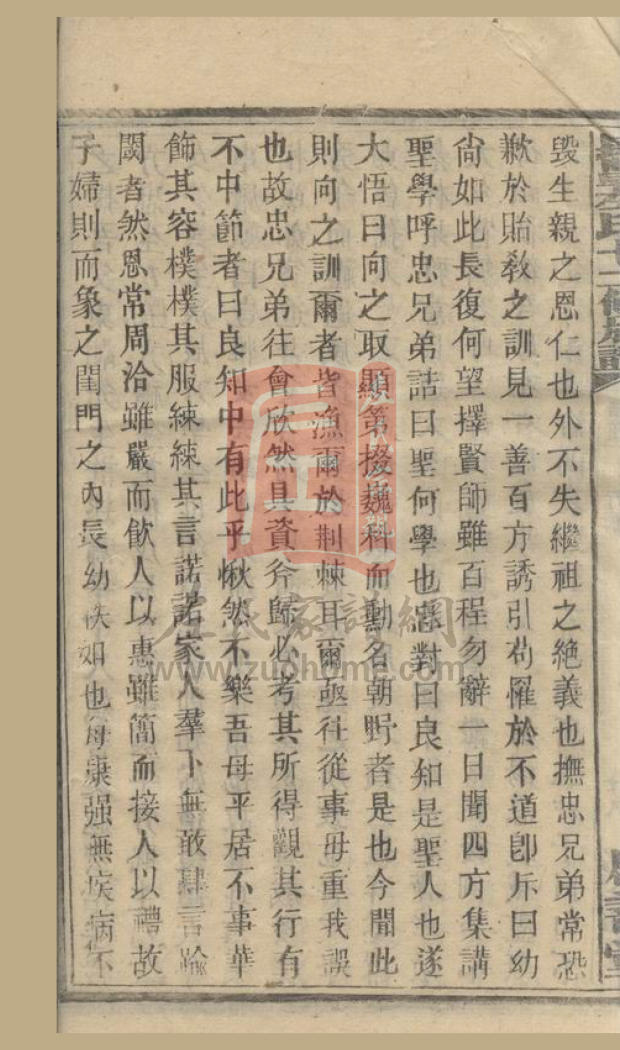 毀生親之恩仁也外不失繼祖之絶義也撫忠兄弟常恐
歉於貽敎之訓見一善百方誘引茍罹於不道卽斥曰幼
尙如此長復何望擇賢師雖百程勿辭一日聞四方集講
聖學呼忠兄弟詰曰聖何學也忠對曰良知是聖人也遂
大悟曰向之取顯第掇巍科而勳名朝野者是也今聞此
則向之訓爾者皆漁爾於荆棘耳爾亟往從事毋重我誤
也故忠兄弟往會欣然具資斧歸必考其所得觀其行有
不中節者曰良知中有此乎愀然不樂吾母平居不事華
飾其容樸樸其服練練其言諾諾家人羣下無敢肆言踰
閾者然恩常周洽雖嚴而飮人以惠雖簡而接人以禮故
子婦則而象之閨門之內長幼秩如也母康强無疾病不
左氏家譜網
www.zuohome.com